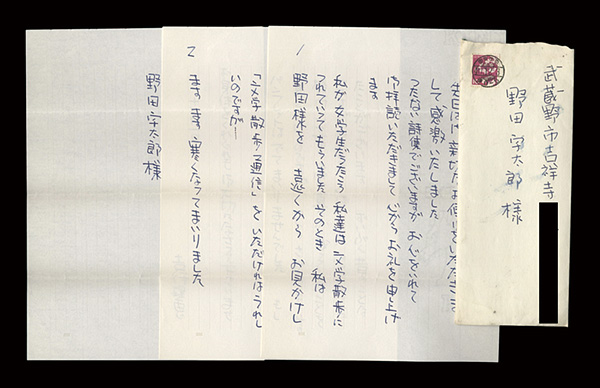 武蔵野市吉祥寺
野田宇太郎様
1
先日は御親切なお便りをいただきま
して感激いたしました
つたない詩集でございますが お心をいれて
御拝読いただきまして 心からお礼を申上げ
ます
私が女学生だったころ 私達は 文学散歩に
つれていってもらいました そのとき 私は
野田様を 遠くから お見かけし
2
「文学散歩通信」をいただければうれし
いのですが—
ます ます 寒くなってまいりました
野田宇太郎様